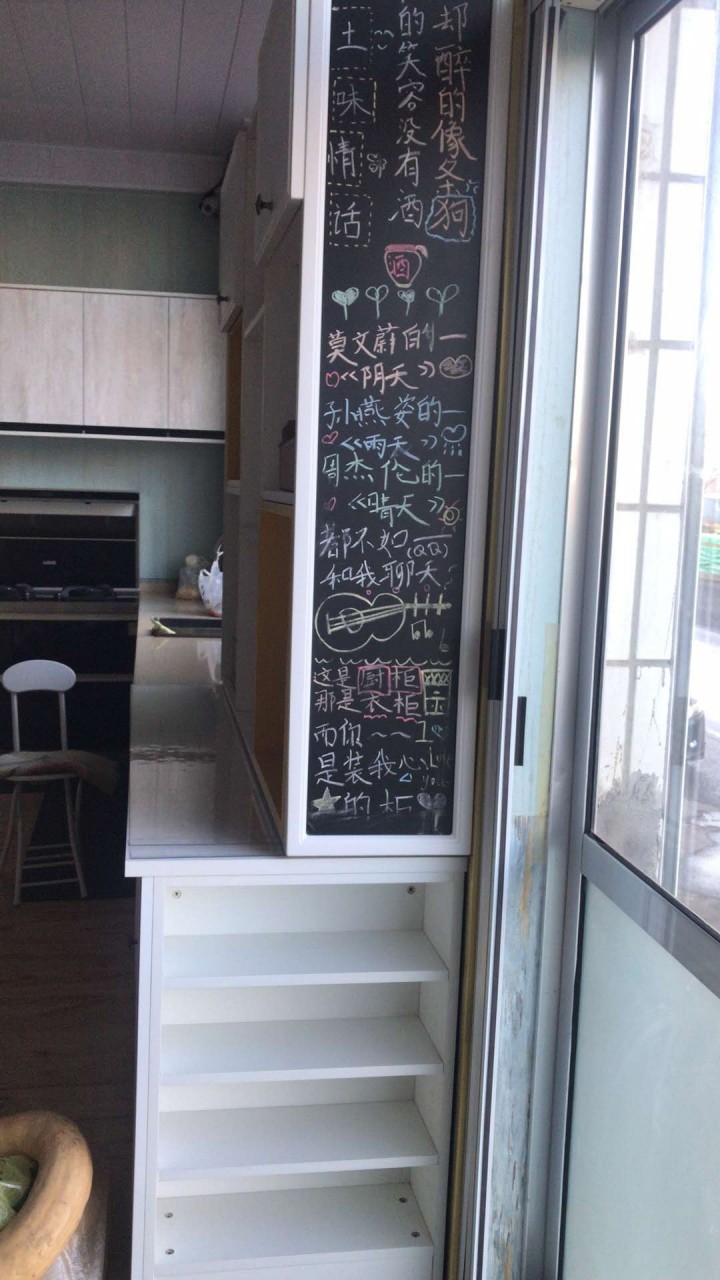 土味情话
的笑容没有酒
却醉的像条狗
酒
莫文蔚的一
《阴天》
孙燕姿的一
《雨天》
周杰伦的一
《晴天》
都不如
(QQ)
和我聊天?
这是厨柜
那是衣柜
而你~~
是装我心
的柜